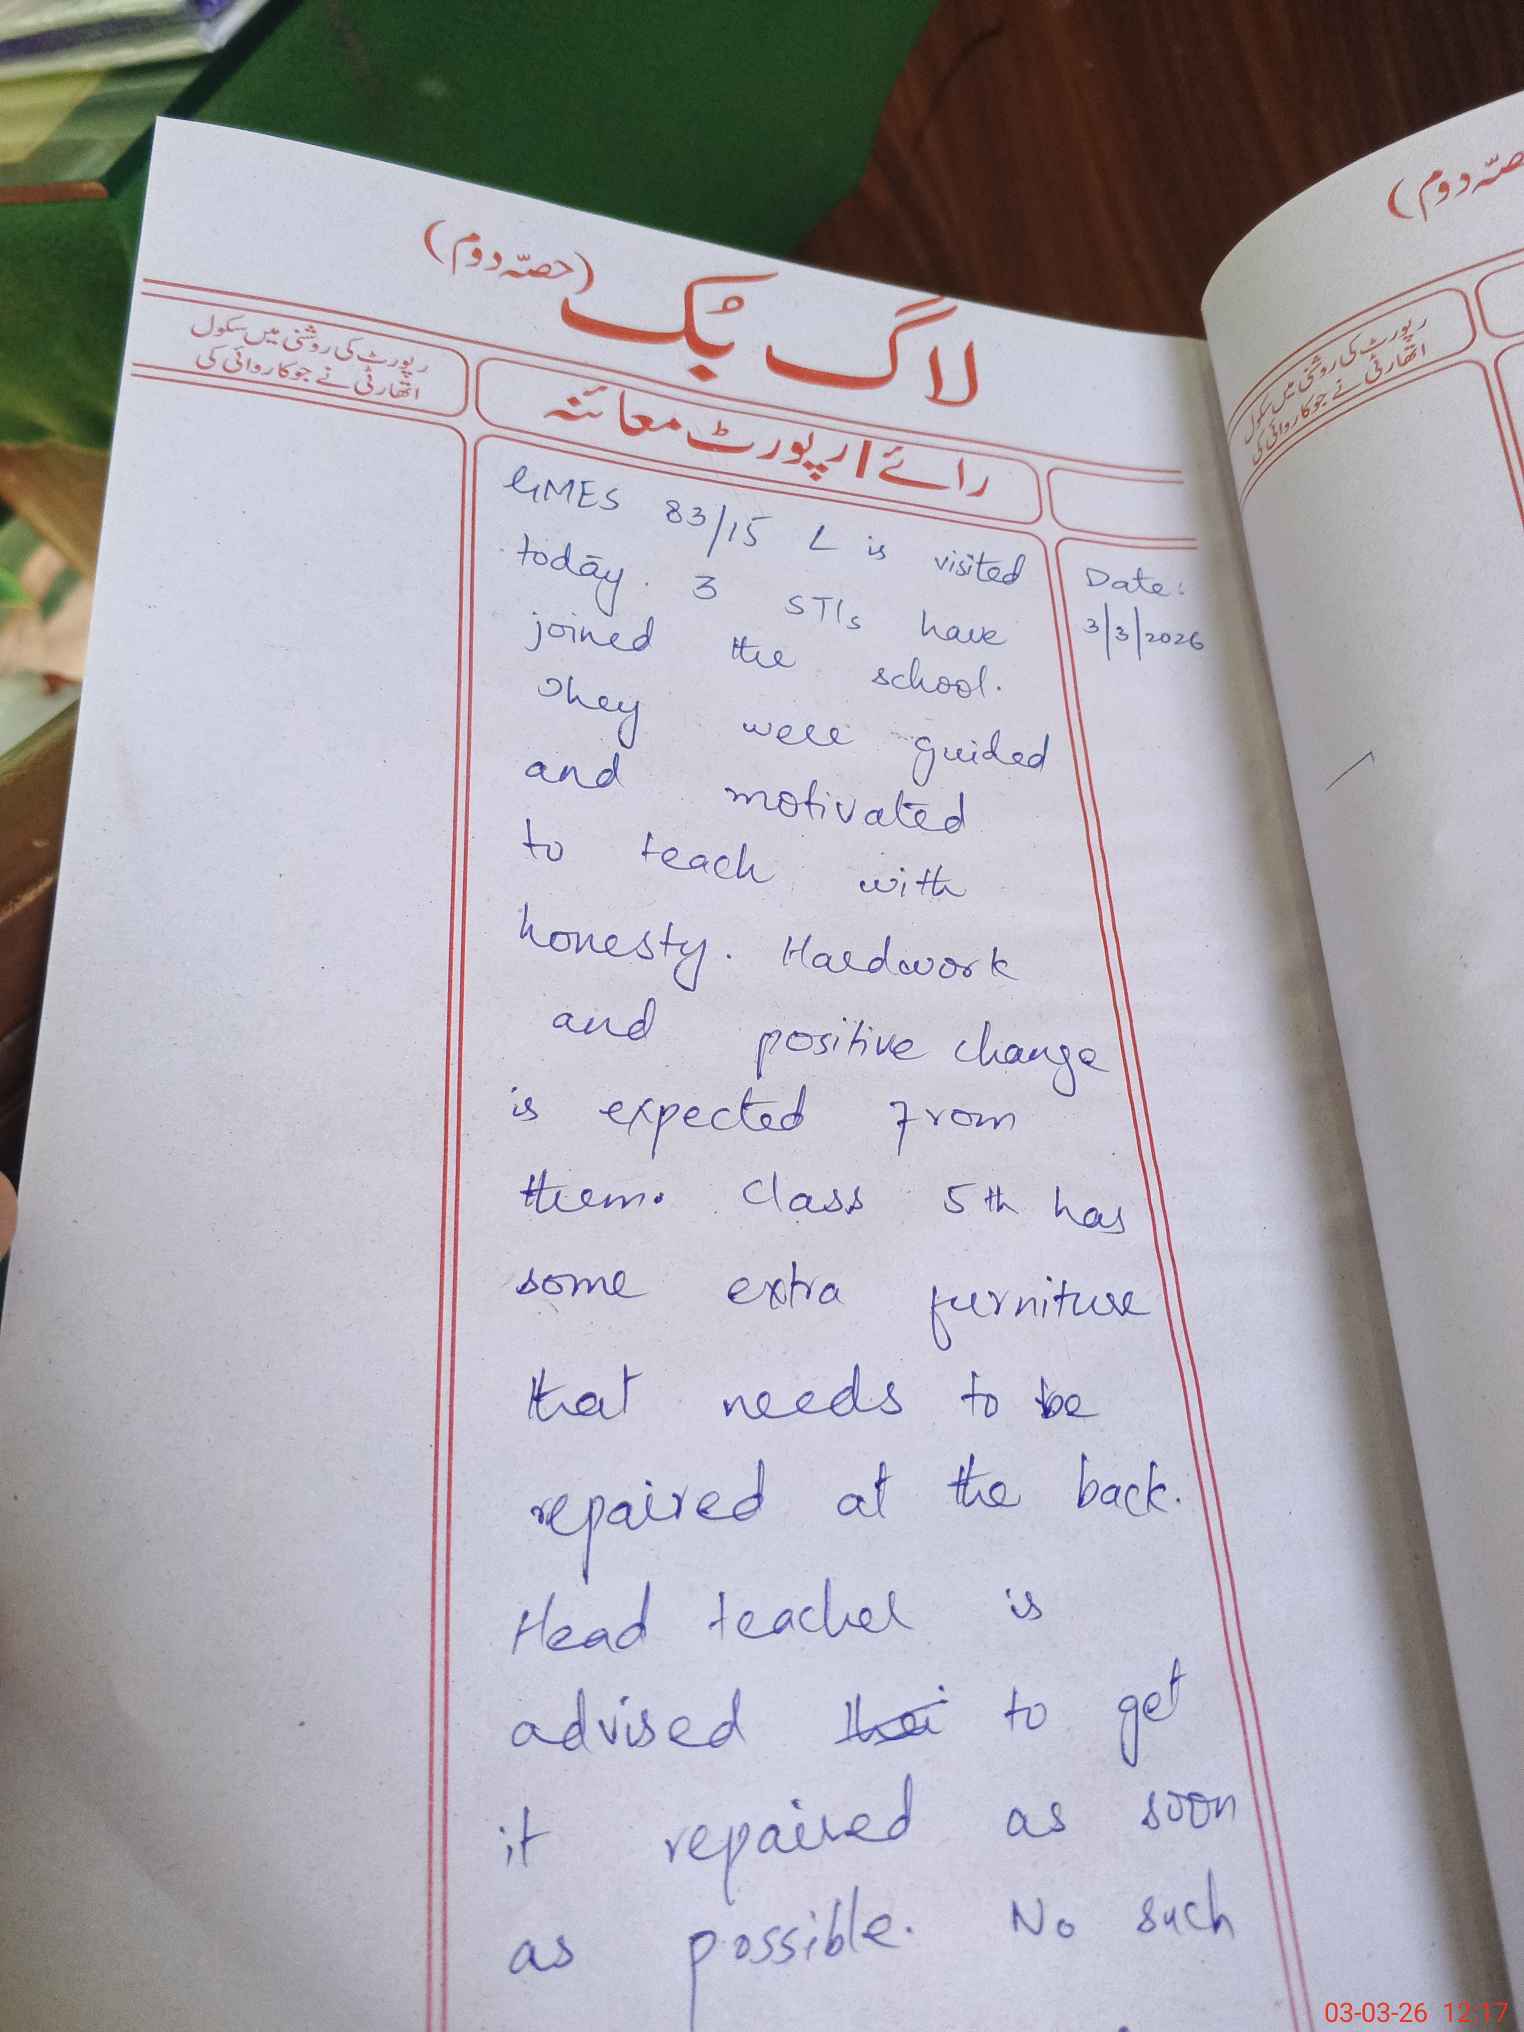 لاگ بُک (حصّہ دوم)
رپورٹ کی روشنی میں سکول
اتھارٹی نے جو کاروائی کی
رائے / رپورٹ معائنہ
GMES 83/15 L is visited
today. 3 STIs have
joined the school.
They were guided
and motivated
to teach with
honesty. Hardwork
and positive change
is expected from
them. Class 5th has
some extra furniture
that needs to be
repaired at the back.
Head teacher is
advised to get
it repaired as soon
as possible. No such
Date:
3/3/2026
حصّہ دوم)
رپورٹ کی روشنی میں سکول
اتھارٹی نے جو کاروائی کی
03-03-26 12:17